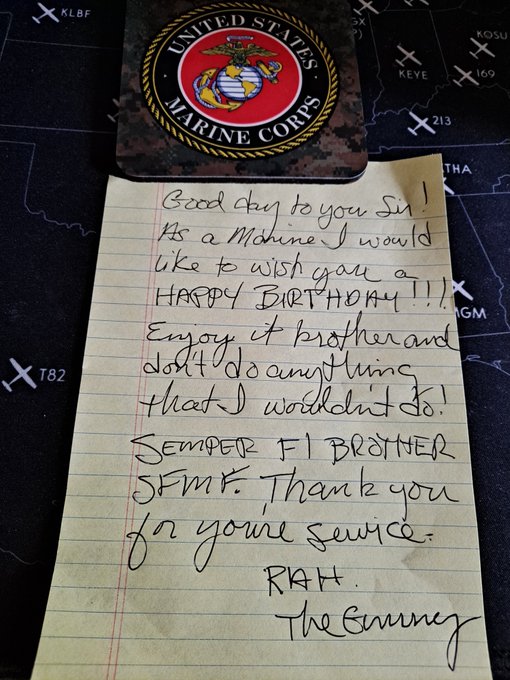 KLBF
KOSU
KEYE
169
213
UNITED STATES
MARINE CORPS
THA
Good day to you Sir!
As a Marine I would
like to wish you a
HAPPY BIRTHDAY!!!!
MGM
Enjoy it brother and
don't do anything
T82
that I wouldn't do!
SEMPER FI BROTHER
SFMF. Thank you
for you're service.
RAH.
The Gunney